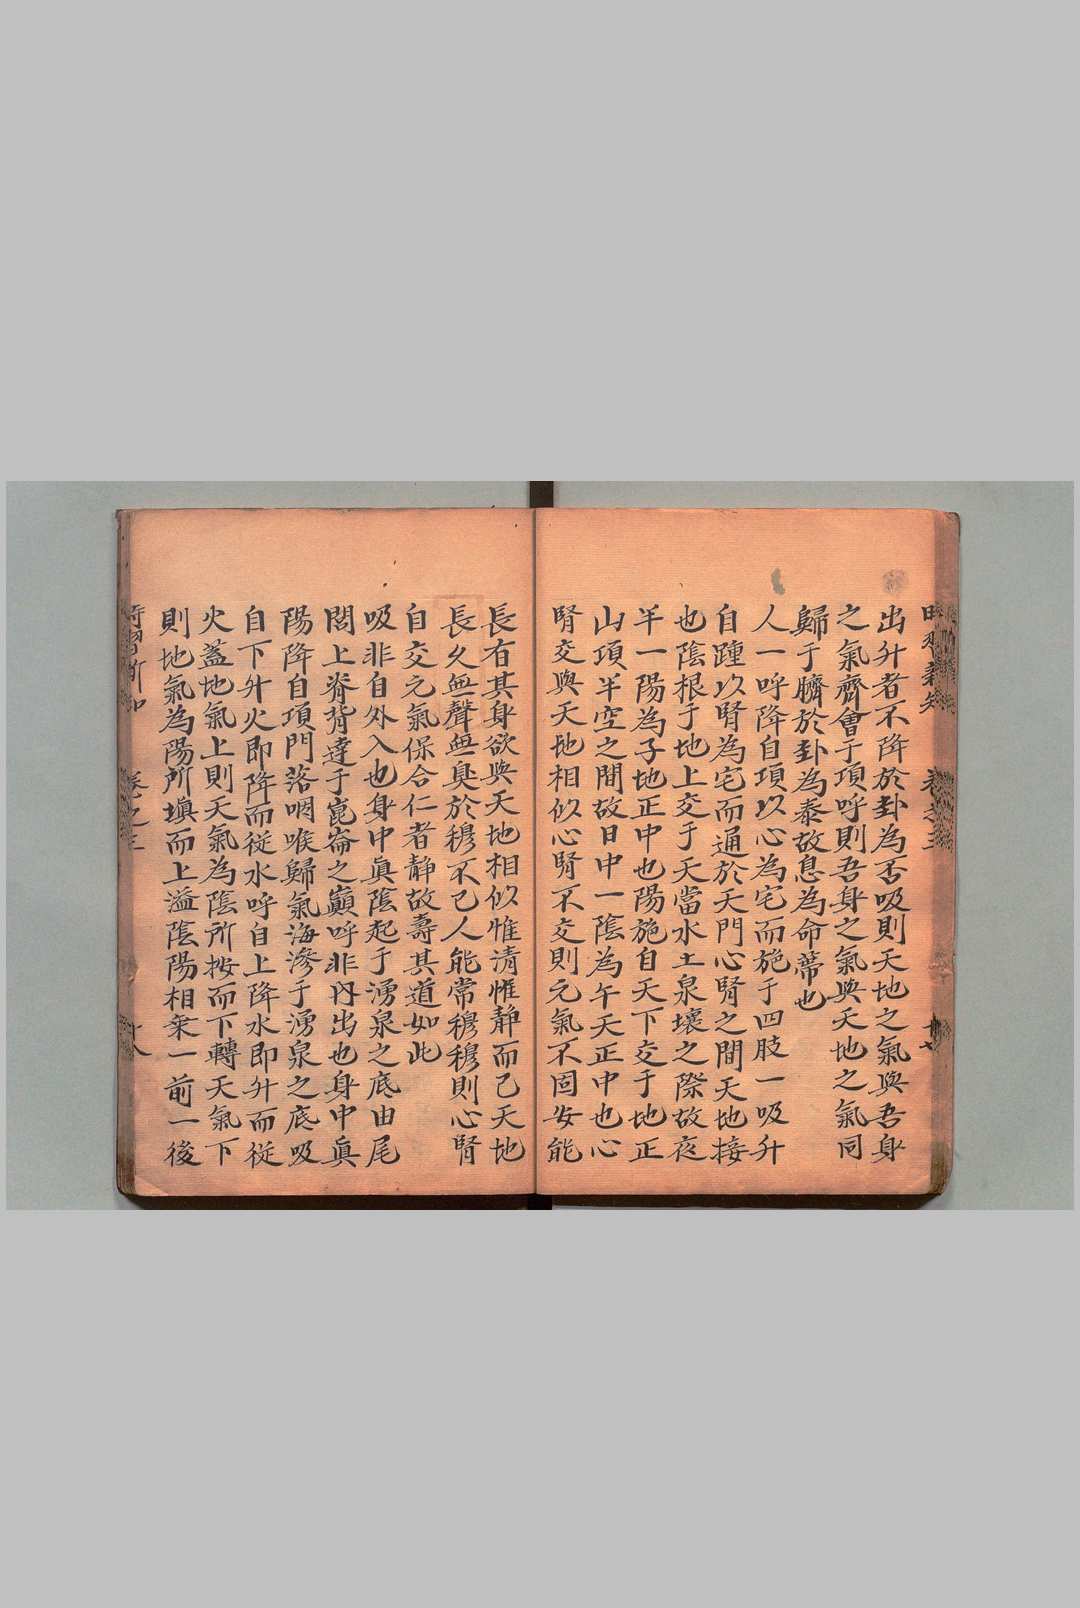 出升者不降於卦為否吸則天地之氣與吾身
之氣齊會于項呼則吾身之氣與天地之氣同
歸于臍於卦為泰故息為命蒂也
人一呼降自項以心為宅而施于四肢一吸升
自踵以腎為宅而通於天門心腎之間天地接
也陰根于地上交于天當水土泉壤之際故夜
半一陽為子地正中也陽施自天下交于地正
山項半空之間故日中一陰為午天正中也心
腎交與天地相似心腎不交則元氣不固安能
長有其身欲與天地相似惟清惟静而已天地
長久無聲無臭於穆不已人能常穆穆則心腎
自交元氣保合仁者静故壽其道如此
吸非自外入也身中真陰起于湧泉之底由尾
閭上脊背達于崑崙之巔呼非内出也身中真
陽降自項門落咽喉歸氣海滲于湧泉之底吸
自下升火即降而從水呼自上降水即升而從
火蓋地氣上則天氣為陰所按而下轉天氣下
則地氣為陽所填而上溢陰陽相乗一前一後
時習新知 卷之三 十八